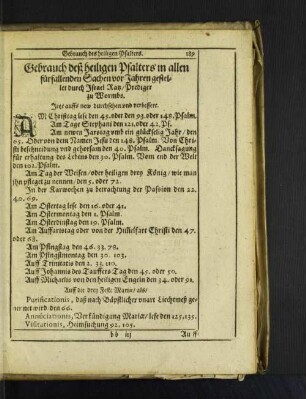 Gebrauch des heiligen Psalters. 189
Gebrauch deß heiligen Psalters in allen
fürfallenden Sachen vor Jahren gestel-
let durch Israel Kay/Prediger
zu Wormbs.
Jetzt auffs new durchsehen vnd verbessert.
AM Christag lese den 45. oder den 93. oder 148. Psalm.
Am Tage Stephani den 121. oder 42. Ps.
Am newen Jarstag vmb ein glückselig Jahr / den
65. Oder von dem Namen Jesu den 148. Psalm. Von Chri-
sti beschneidung vnd gehorsam den 40. Psalm. Dancksagung
für erhaltung des Lebens den 30. Psalm. Vom end der Welt
den 102. Psalm.
Am Tag der Weisen/oder heiligen drey König/ wie man
ihn pfleget zu nennen/den 5. oder 72.
In der Karwochen zu betrachtung der Passion den 22.
40. 69.
Am Ostertag lese den 16. oder 41.
Am Ostermontag den 1. Psalm.
Am Osterdinstag den 19. Psalm.
Am Auffartstag oder von der Himelfart Christi den 47.
oder 68.
Am Pfingstag den 46. 33. 78.
Am Pfingstmontag den 30. 103.
Auff Trinitatis den 2. 33. 110.
Auff Johannis des Tauffers Tag den 45. oder 50.
Auff Michaelis von den heiligen Engeln den 34. oder 91.
Auff die drey Fest Mariæ/ als/
Purificationis, daß nach Bäpstlicher vnart Liechtmeß ge-
nennet wird den 66.
Annunciationis, Verkündigung Mariæ/ lese den 125. 135.
Visitationis, Heimsuchung 92. 105.
bb iij Auff